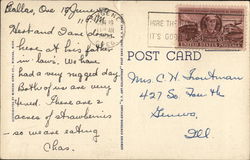 Dallas, Ore 18 June
Herb and Jane down
here at his father
in laws. We have
had a very rugged day.
Both of us are very
tired. There are 2
acres of strawberries
- so we are eating
Chas.
HIRE THE
IT'S GOO
UNITED STATES POSTAGE
POST CARD
Mrs. C. H. Troutman
427 So. Fourth
Geneva,
Ill.